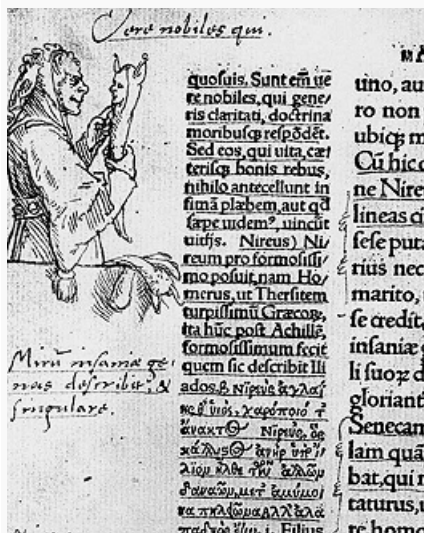 Vere nobiles qui.
quosuis. Sunt em̃ ue
re nobiles, qui gene/
ris claritati, doctrina
moribusq; respõdẽt.
Sed eos, qui uita, cæ/
terisq; bonis rebus,
nihilo antecellunt in
fimã plæbem, aut qđ
sæpe uidem⁹, uincũt
uitijs. Nireus) Ni/
reum pro formosissi/
mo posuit, nam Ho/
merus, ut Thersitem
turpissimũ Græcorũ,
ita hũc post Achillẽ,
formosissimum fecit
quem sic describit Ili
ados.β Νιρεὺς ἀγλαί
Νιρεύς, ὃς
Filius
Mirũ insaniæ ge-
nus describit, &
singulare.
MA
uno, au
ro non
ubiq; m
Cũ hic c
ne Nire
lineas ci
sese puta
rius nec
marito,
se credit
insaniæ
li suoȝ d
gloriant
Senecam
lam quã
bat, qui r
taturus, u
re homo